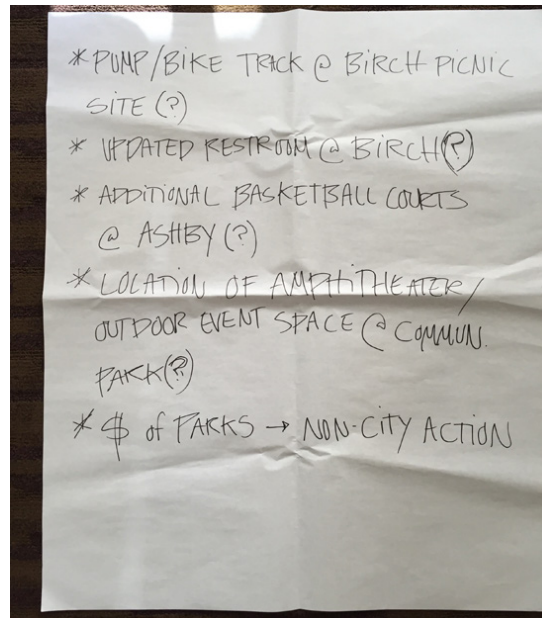 * PUMP/BIKE TRACK @ BIRCH PICNIC
SITE (?)
* UPDATED RESTROOM @ BIRCH (?)
* ADDITIONAL BASKETBALL COURTS
@ ASHBY (?)
* LOCATION OF AMPHITHEATER/
OUTDOOR EVENT SPACE @ COMMUN.
PARK (?)
* $ of PARKS → NON-CITY ACTION